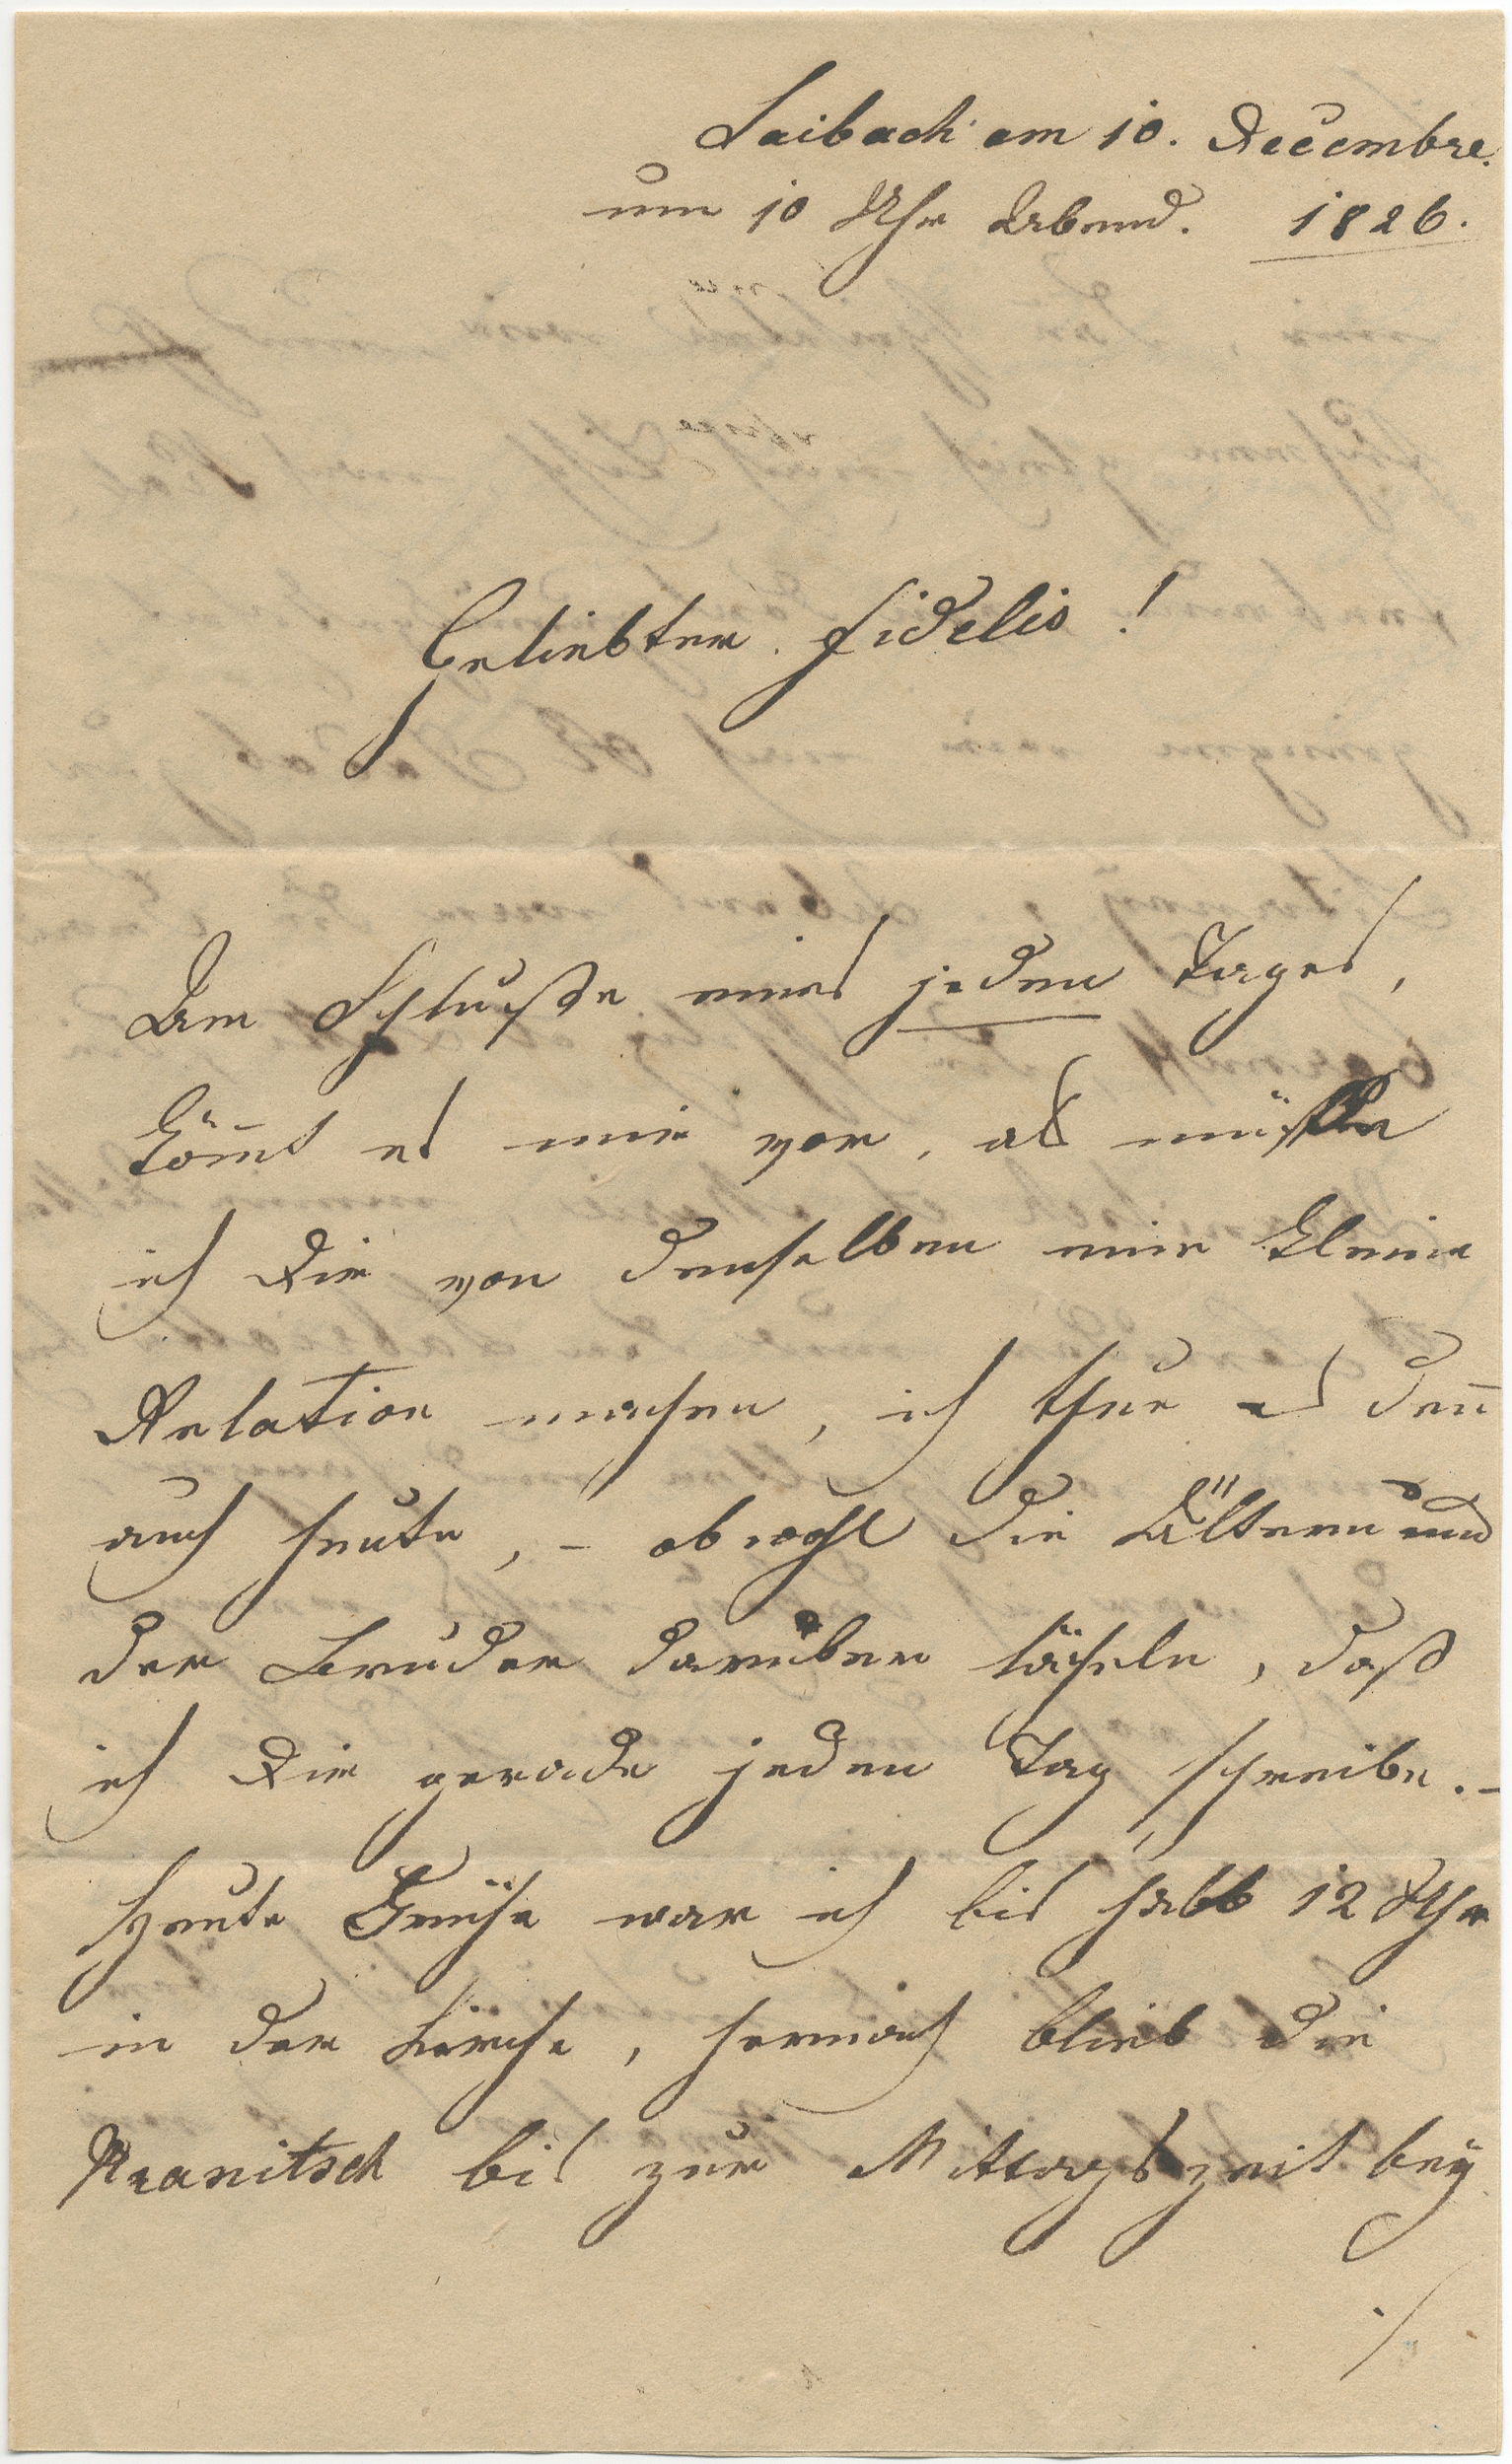 Laibach am 10. Decembre.
um 10 Uhr Abend. 1826.
Geliebter Fidelis!
Am Schluße eines jeden Tages,
köm̄t es mir vor, als müßte
ich Dir von demselben eine kleine
Relation machen, ich thue es den̄
auch heute, – obwohl die Ältern und
der Bruder darüber lächeln, daß
ich Dir gerade jeden Tag schreibe. –
Heute Frühe war ich bis halb 12 Uhr
in der Kirche, hernach blieb die
Pranitsch bis zur Mittagszeit bey
./.